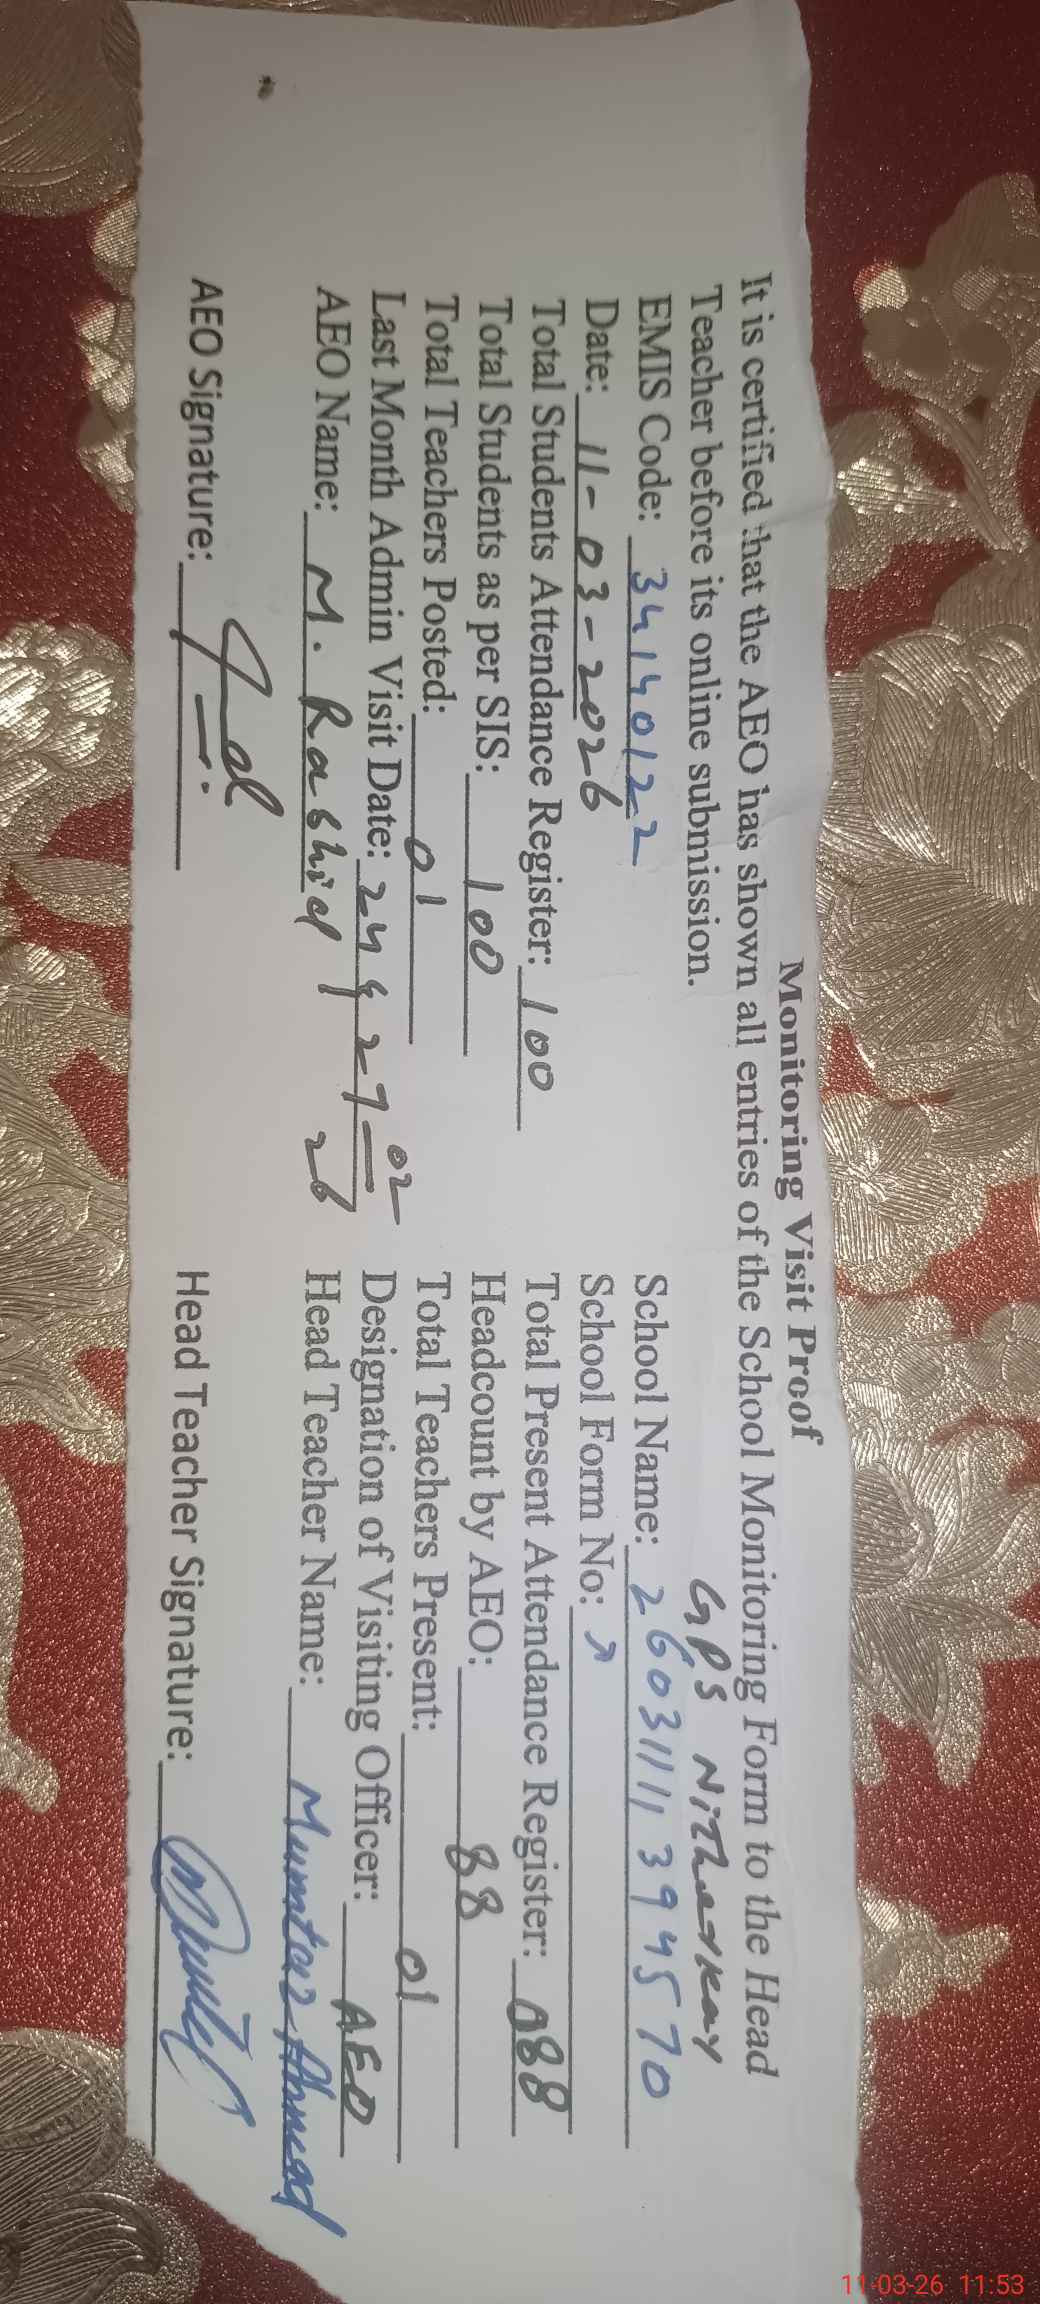 Monitoring Visit Proof
It is certified that the AEO has shown all entries of the School Monitoring Form to the Head
Teacher before its online submission.
GPS
EMIS Code: 34140122 School Name: 2603111394570
Date: 11-03-2026 School Form No:
Total Students Attendance Register: 100 Total Present Attendance Register: 088
Total Students as per SIS: 100 Headcount by AEO: 88
Total Teachers Posted: 01 Total Teachers Present: 01
Last Month Admin Visit Date: 24 & 27-02 26 Designation of Visiting Officer: AEO
AEO Name: M. Rashid Head Teacher Name: Mumtaz Ahmad
AEO Signature: Head Teacher Signature:
11-03-26 11:53